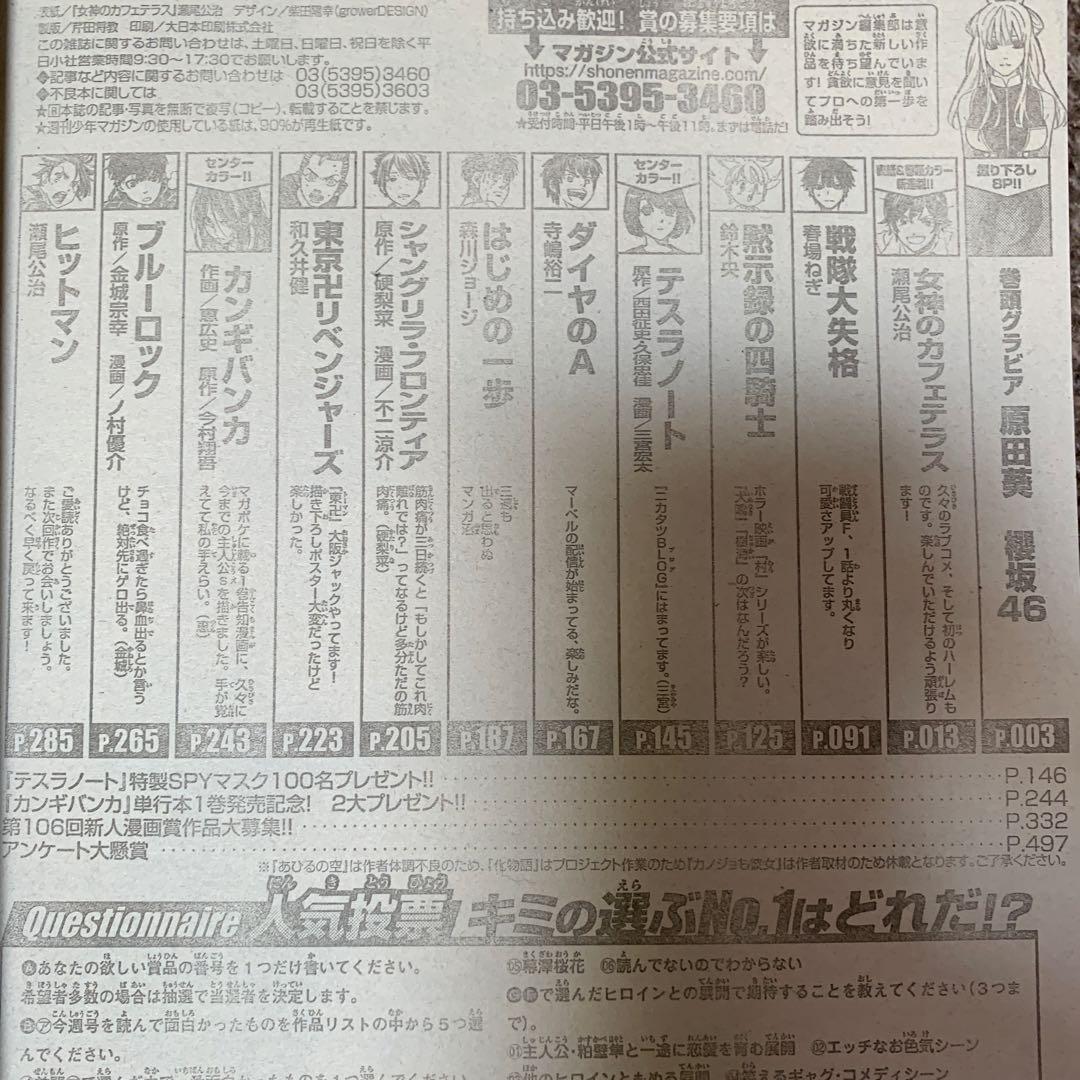 表紙/『女神のカフェテラス』瀬尾公治 デザイン/柴田陽幸(growerDESIGN)
製版/芹田将教 印刷/大日本印刷株式会社
この雑誌に関するお問い合わせは、土曜日、日曜日、祝日を除く平
日小社営業時間9:30〜17:30でお願いします。
◆記事など内容に関するお問い合わせは 03(5395)3460
◆不良本に関しては 03(5395)3603
★本誌の記事・写真を無断で複写(コピー)、転載することを禁じます。
★週刊少年マガジンの使用している紙は、90%が再生紙です。
持ち込み歓迎! 賞の募集要項は
マガジン公式サイト
https://shonenmagazine.com/
03-5395-3460
★受付時間・平日午後1時〜午後11時。まずは電話だ!
マガジン編集部は意
欲に満ちた新しい作
品を待ち望んでいま
す!貪欲に意見を聞い
てプロへの第一歩を
踏み出そう!
撮り下ろし
8P!!
巻頭グラビア 原田葵 櫻坂46
P.003
表紙&巻頭カラー
新連載!!
女神のカフェテラス
瀬尾公治
久々のラブコメ、そして初のハーレムも
のです。楽しんでいただけるよう頑張り
ます!
P.013
戦隊大失格
春場ねぎ
戦闘員F、1話より丸くなり
可愛さアップしてます。
P.091
黙示録の四騎士
鈴木央
ホラー映画「村」シリーズが楽しい。
『犬鳴』『樹海』の次はなんだろう?
P.125
センター
カラー!!
テスラノート
原作/西田征史・久保忠佳 漫画/三宮宏太
『ニカタツBLOG』にはまってます。(三宮)
P.145
ダイヤのA
寺嶋裕二
マーベルの配信が始まってる、楽しみだな。
P.167
はじめの一歩
森川ジョージ
出ると思わぬ
マンガ沼
P.187
シャングリラ・フロンティア
原作/硬梨菜 漫画/不二涼介
筋肉痛が三日続くと「もしかしてこれ肉
離れでは?」ってなるけど多分ただの筋
肉痛。(硬梨菜)
P.205
東京卍リベンジャーズ
和久井健
『東卍』大阪ジャックやってます!
描き下ろしポスター大変だったけど
楽しかった。
P.223
センター
カラー!!
カンギバンカ
作画/恵広史 原作/今村翔吾
マガポケに載る1巻告知漫画に、久々に
今までの主人公sを描きました。手が覚
えてて私の手えらい。(恵)
P.243
ブルーロック
原作/金城宗幸 漫画/ノ村優介
チョコ食べ過ぎたら鼻血出るとか言う
けど、絶対先にゲロ出る。(金城)
P.265
ヒットマン
瀬尾公治
ご愛読ありがとうございました。
また次回作でお会いしましょう。
なるべく早く戻って来ます!
P.285
『テスラノート』特製SPYマスク100名プレゼント!! P.146
『カンギバンカ』単行本1巻発売記念! 2大プレゼント!! P.244
第106回新人漫画賞作品大募集!! P.332
アンケート大懸賞 P.497
※『あひるの空』は作者体調不良のため、『化物語』はプロジェクト作業のため『カノジョも彼女』は作者取材のため休載となります。ご了承ください。
Questionnaire 人気投票 キミの選ぶNo.1はどれだ!?
Ⓐあなたの欲しい賞品の番号を1つだけ書いてください。
希望者多数の場合は抽選で当選者を決定します。
Ⓑア今週号を読んで面白かったものを作品リストの中から5つ選
んでください。
05幕澤桜花 06読んでないのでわからない
で選んだヒロインとの展開で期待することを教えてください(3つま
で)。
01主人公・粕壁隼と一途に恋愛を育む展開 02エッチなお色気シーン